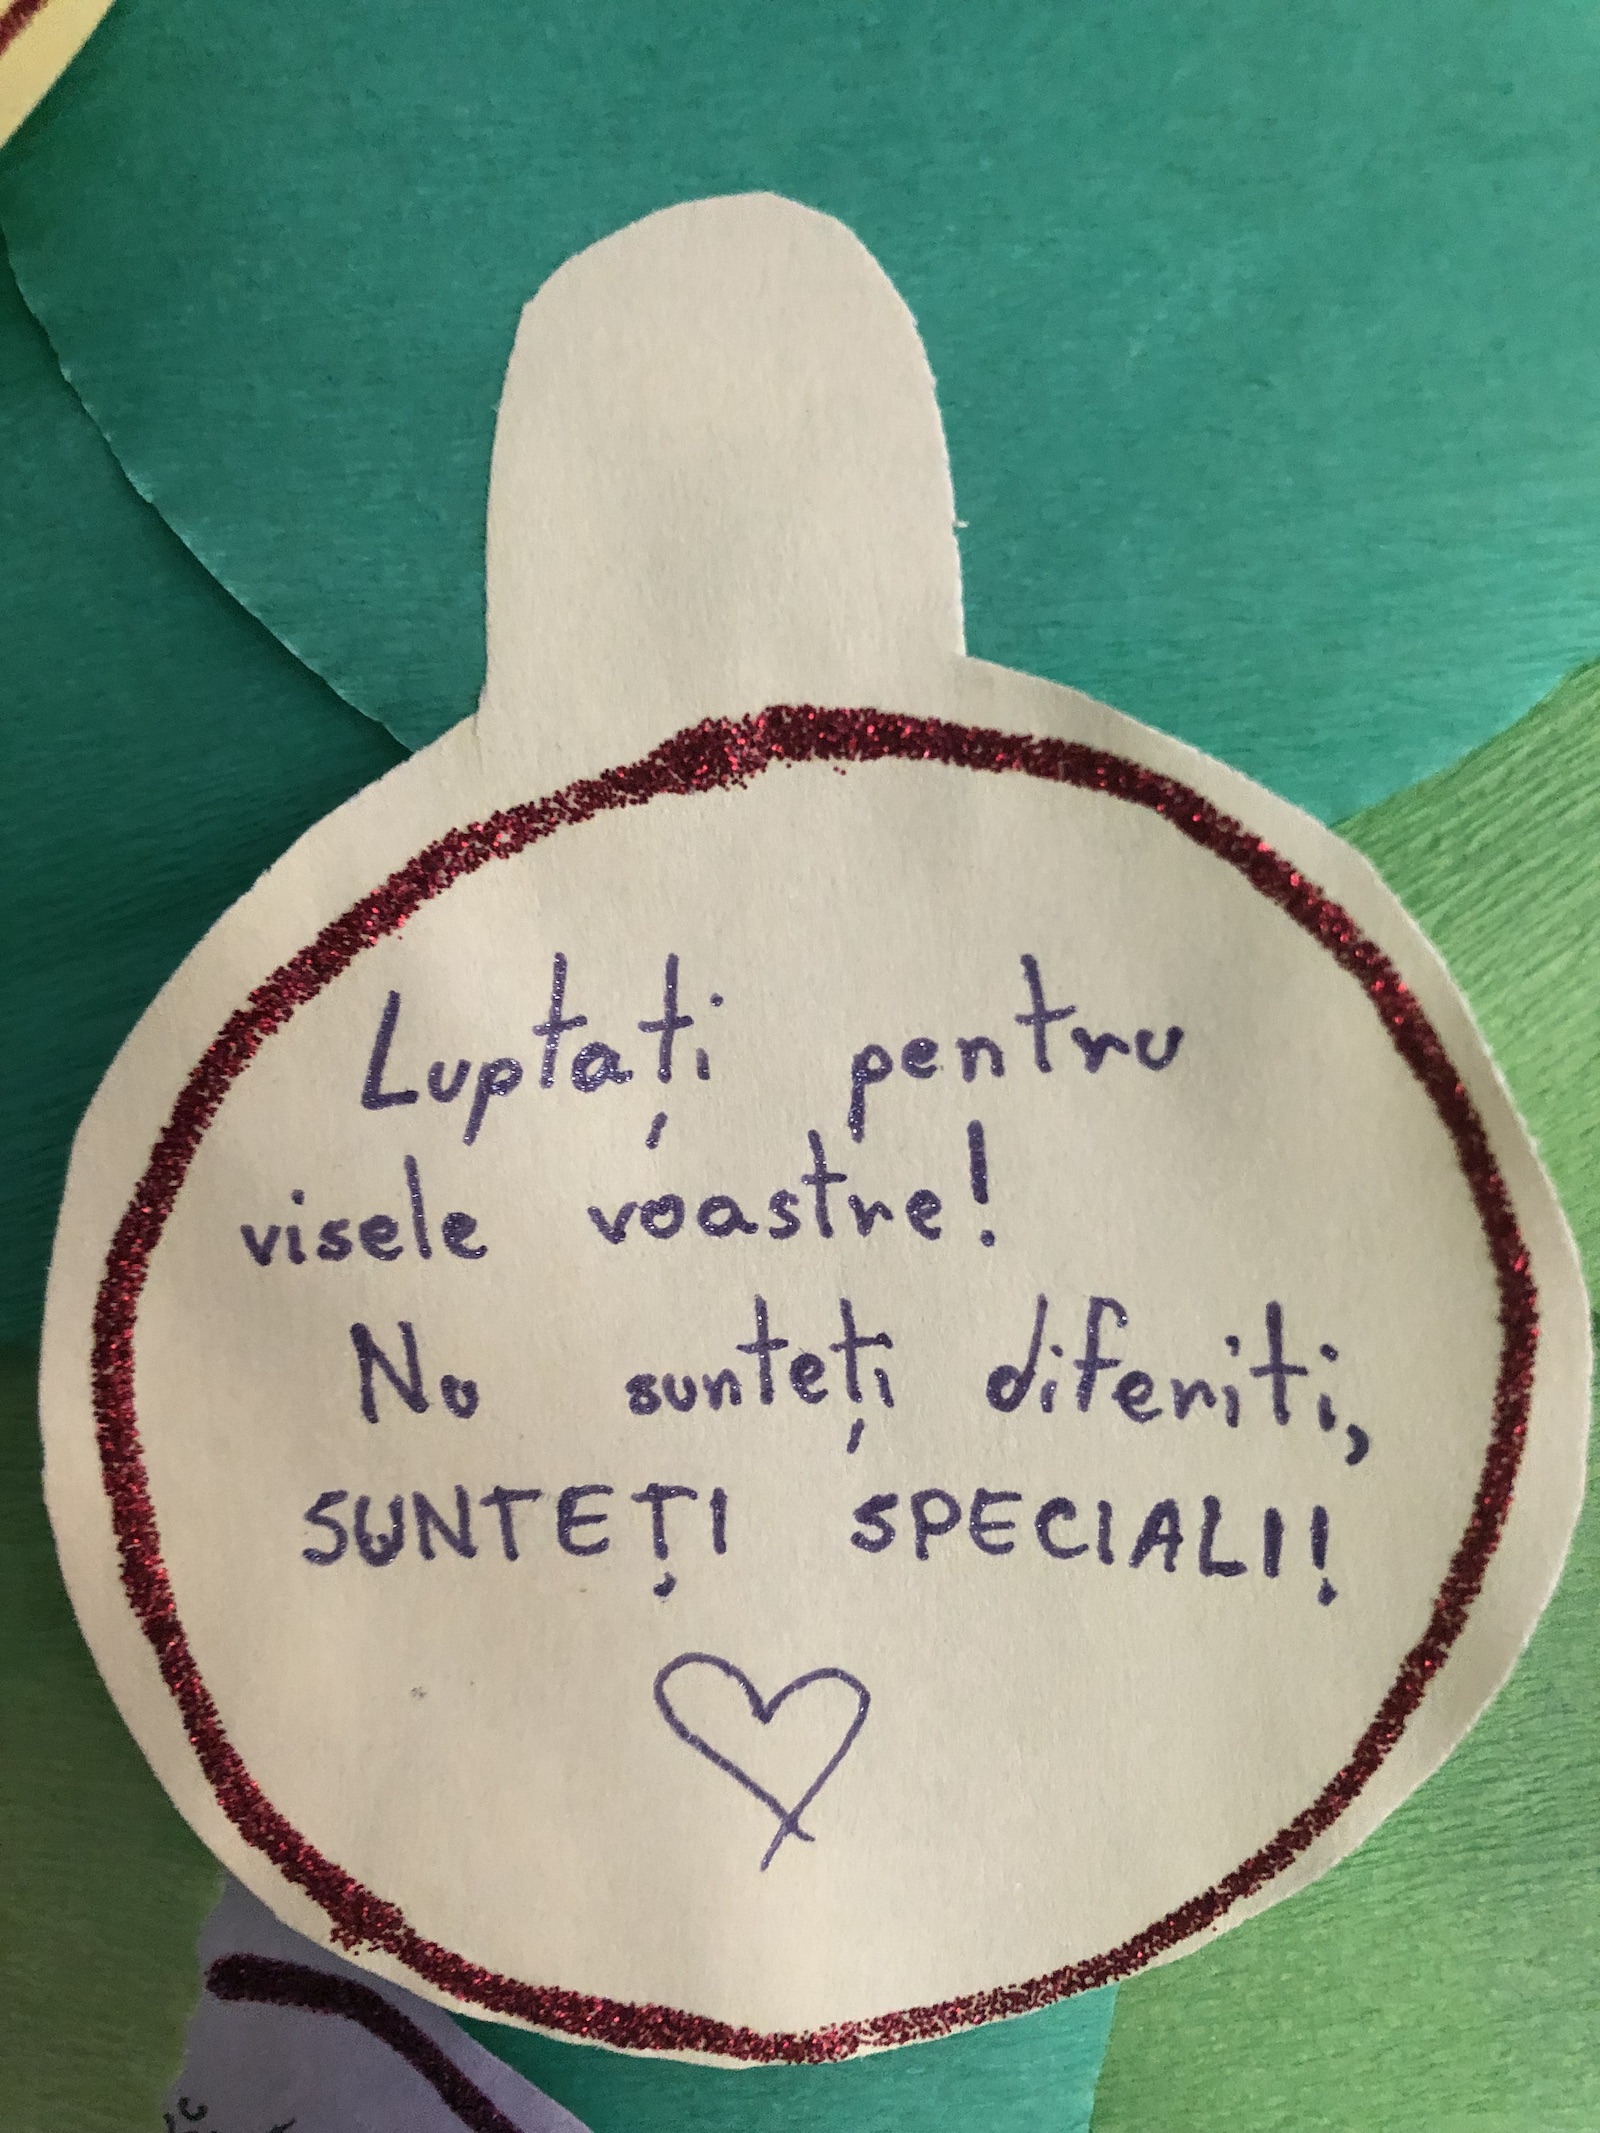 Luptați pentru
visele voastre!
Nu sunteți diferiti,
SUNTEȚI SPECIALI!